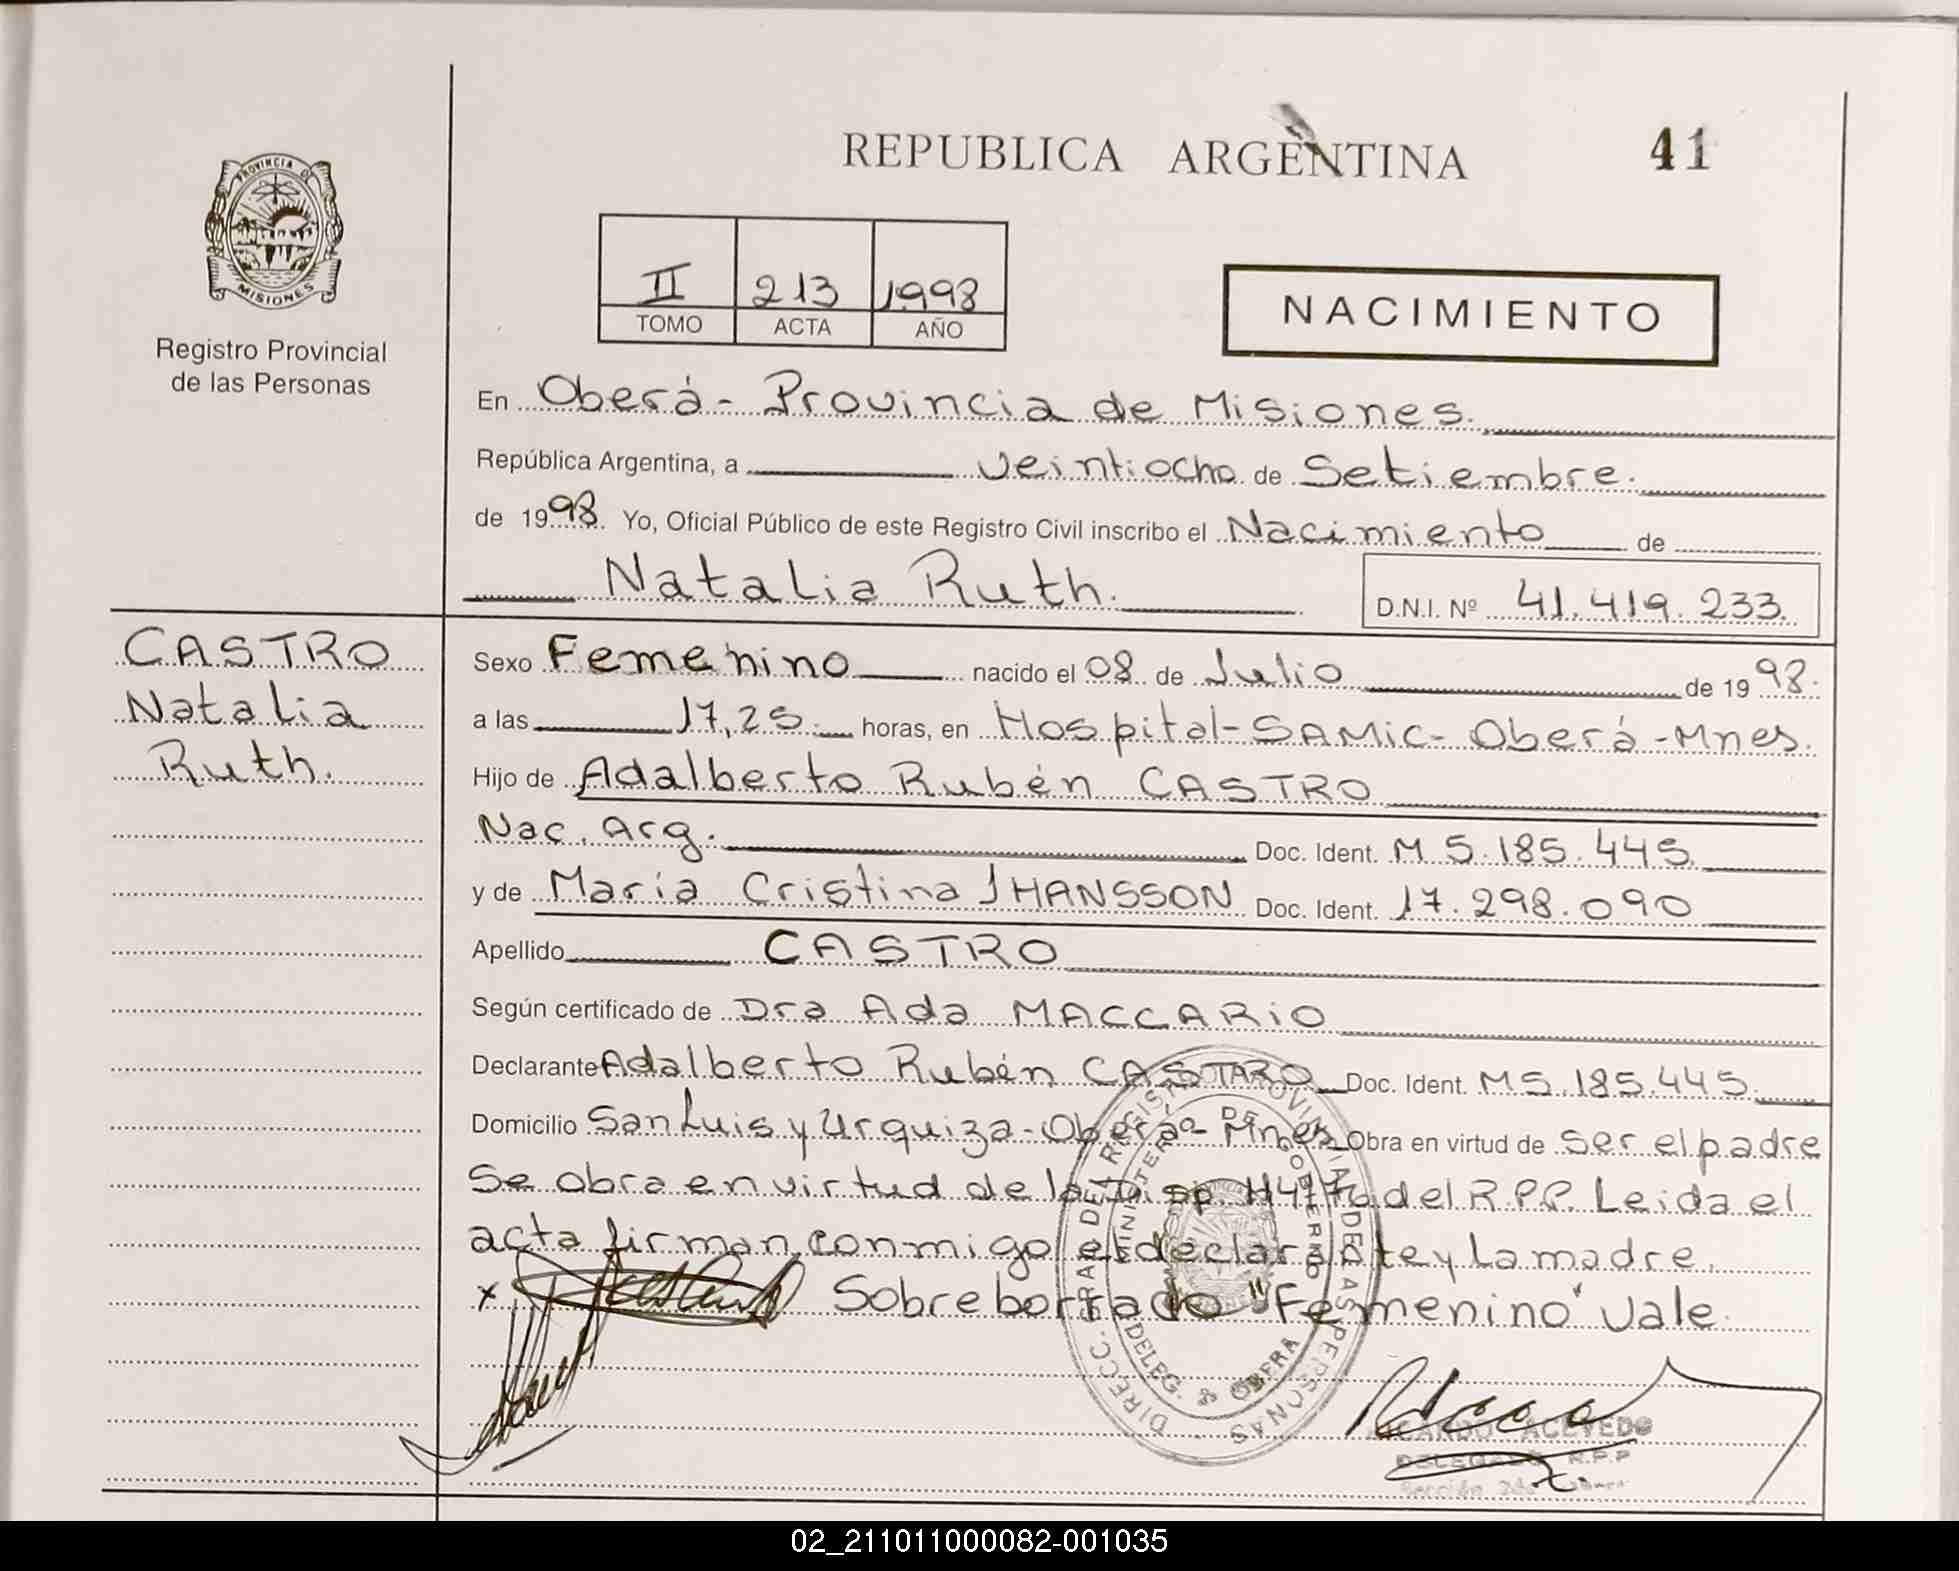 REPUBLICA ARGENTINA
41
PROVINCIA DE
MISIONES
Registro Provincial
de las Personas
II 213 1998
TOMO ACTA AÑO
NACIMIENTO
En Oberá - Provincia de Misiones.
República Argentina, a veintiocho de Setiembre.
de 1998. Yo, Oficial Público de este Registro Civil inscribo el Nacimiento de
Natalia Ruth.
D.N.I. Nº 41.419.233.
CASTRO
Natalia
Ruth.
Sexo Femenino nacido el 08 de Julio de 1998.
a las 17,25. horas, en Hospital-SAMIC- Oberá-Mnes.
Hijo de Adalberto Rubén CASTRO
Nac. Arg. Doc. Ident. M 5.185.445.
y de María Cristina JHANSSON Doc. Ident. 17.298.090
Apellido CASTRO
Según certificado de Dra Ada MACCARIO
Declarante Adalberto Rubén CASTRO Doc. Ident. M 5.185.445.
Domicilio San Luis y Urquiza - Oberá - Mnes Obra en virtud de ser el padre
Se obra en virtud de la Disp. del R.P.P. Leida el
acta firman conmigo el declarante y la madre.
x Sobre borrado "Femenino" vale.
DIRECC. GRAL DEL REGISTRO PROVINCIAL DE LAS PERSONAS
MINISTERIO DE GOBIERNO
DELEG. 8 OBERA
RICARDO ACEVEDO
DELEGADO R.P.P
Sección 2da
02_211011000082-001035